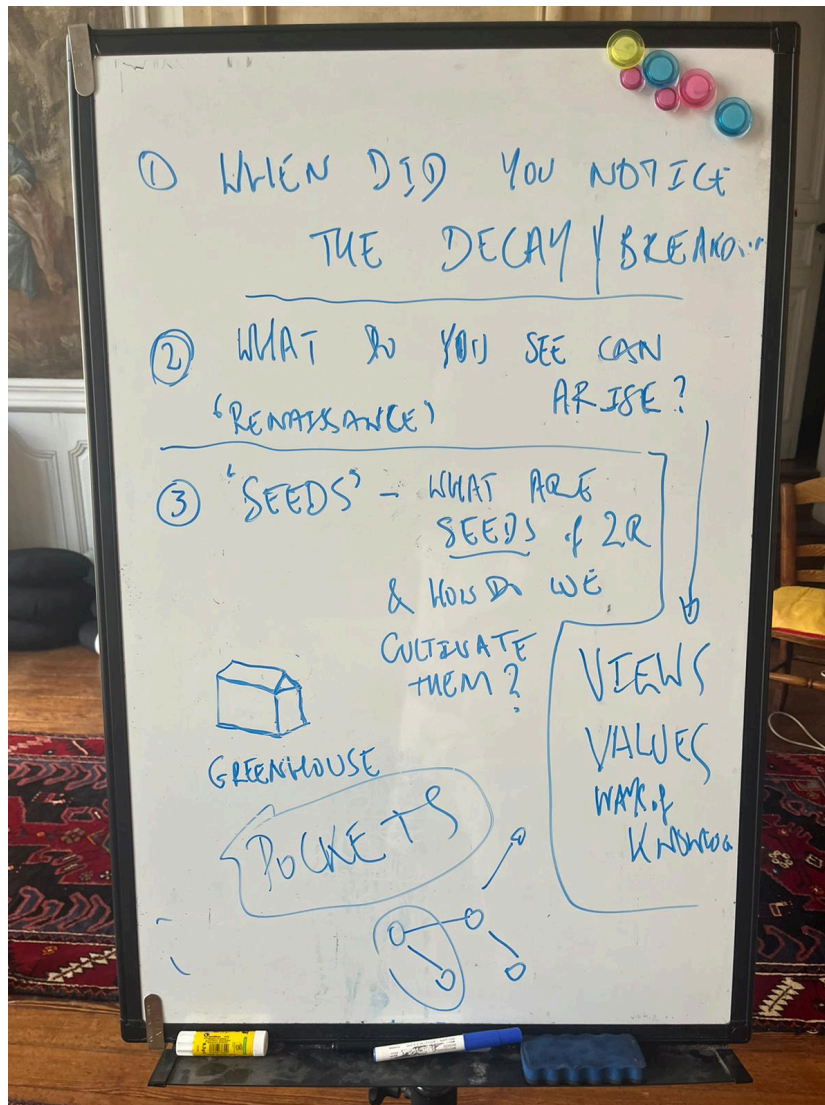 ① WHEN DID YOU NOTICE
THE DECAY / BREAKDO...
② WHAT DO YOU SEE CAN
ARISE?
'RENAISSANCE'
③ 'SEEDS' - WHAT ARE
SEEDS of 2R
& HOW DO WE
CULTIVATE
THEM?
GREENHOUSE
POCKETS
VIEWS
VALUES
WAYS of